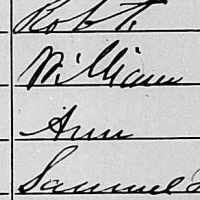 Robt.
William
Ann
Samuel